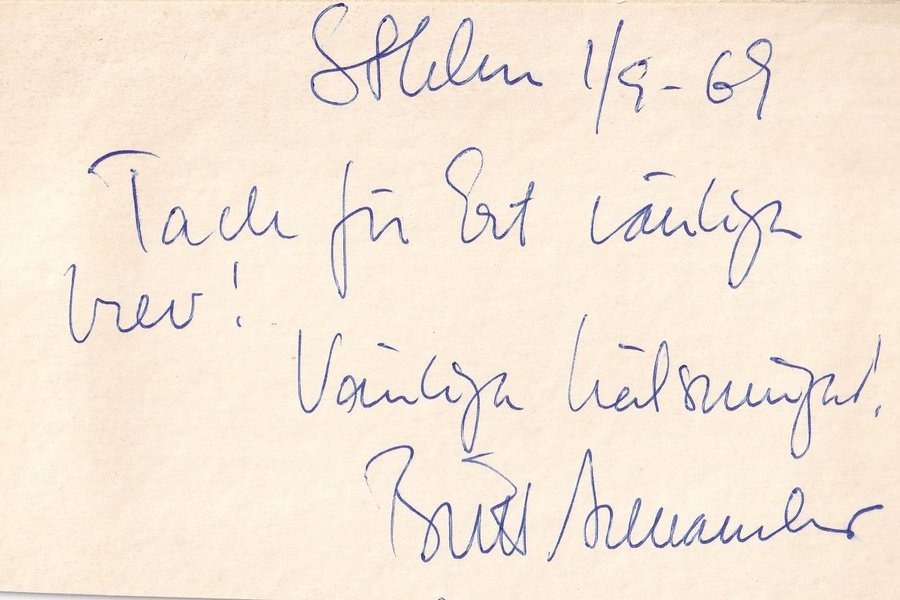 Sthlm 1/9-69
Tack för Ert vänliga
brev!
Vänliga hälsningar!
Britt Arenander